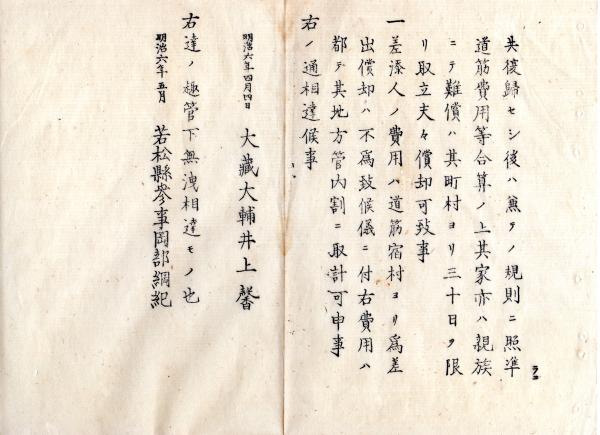 共復歸セシ後ハ兼テノ規則ニ照準
道筋費用等合算ノ上其家亦ハ親族
ニテ難償ハ其町村ヨリ三十日ヲ限
リ取立夫々償却可致事
一差添人ノ費用ハ道筋宿村ヨリ爲差
出償却ハ不爲致候儀ニ付右費用ハ
都テ其地方管内割ニ取計可申事
右ノ通相達候事
明治六年四月四日 大藏大輔井上馨
右達ノ趣管下無洩相達モノ也
明治六年五月 若松縣參事岡部綱紀